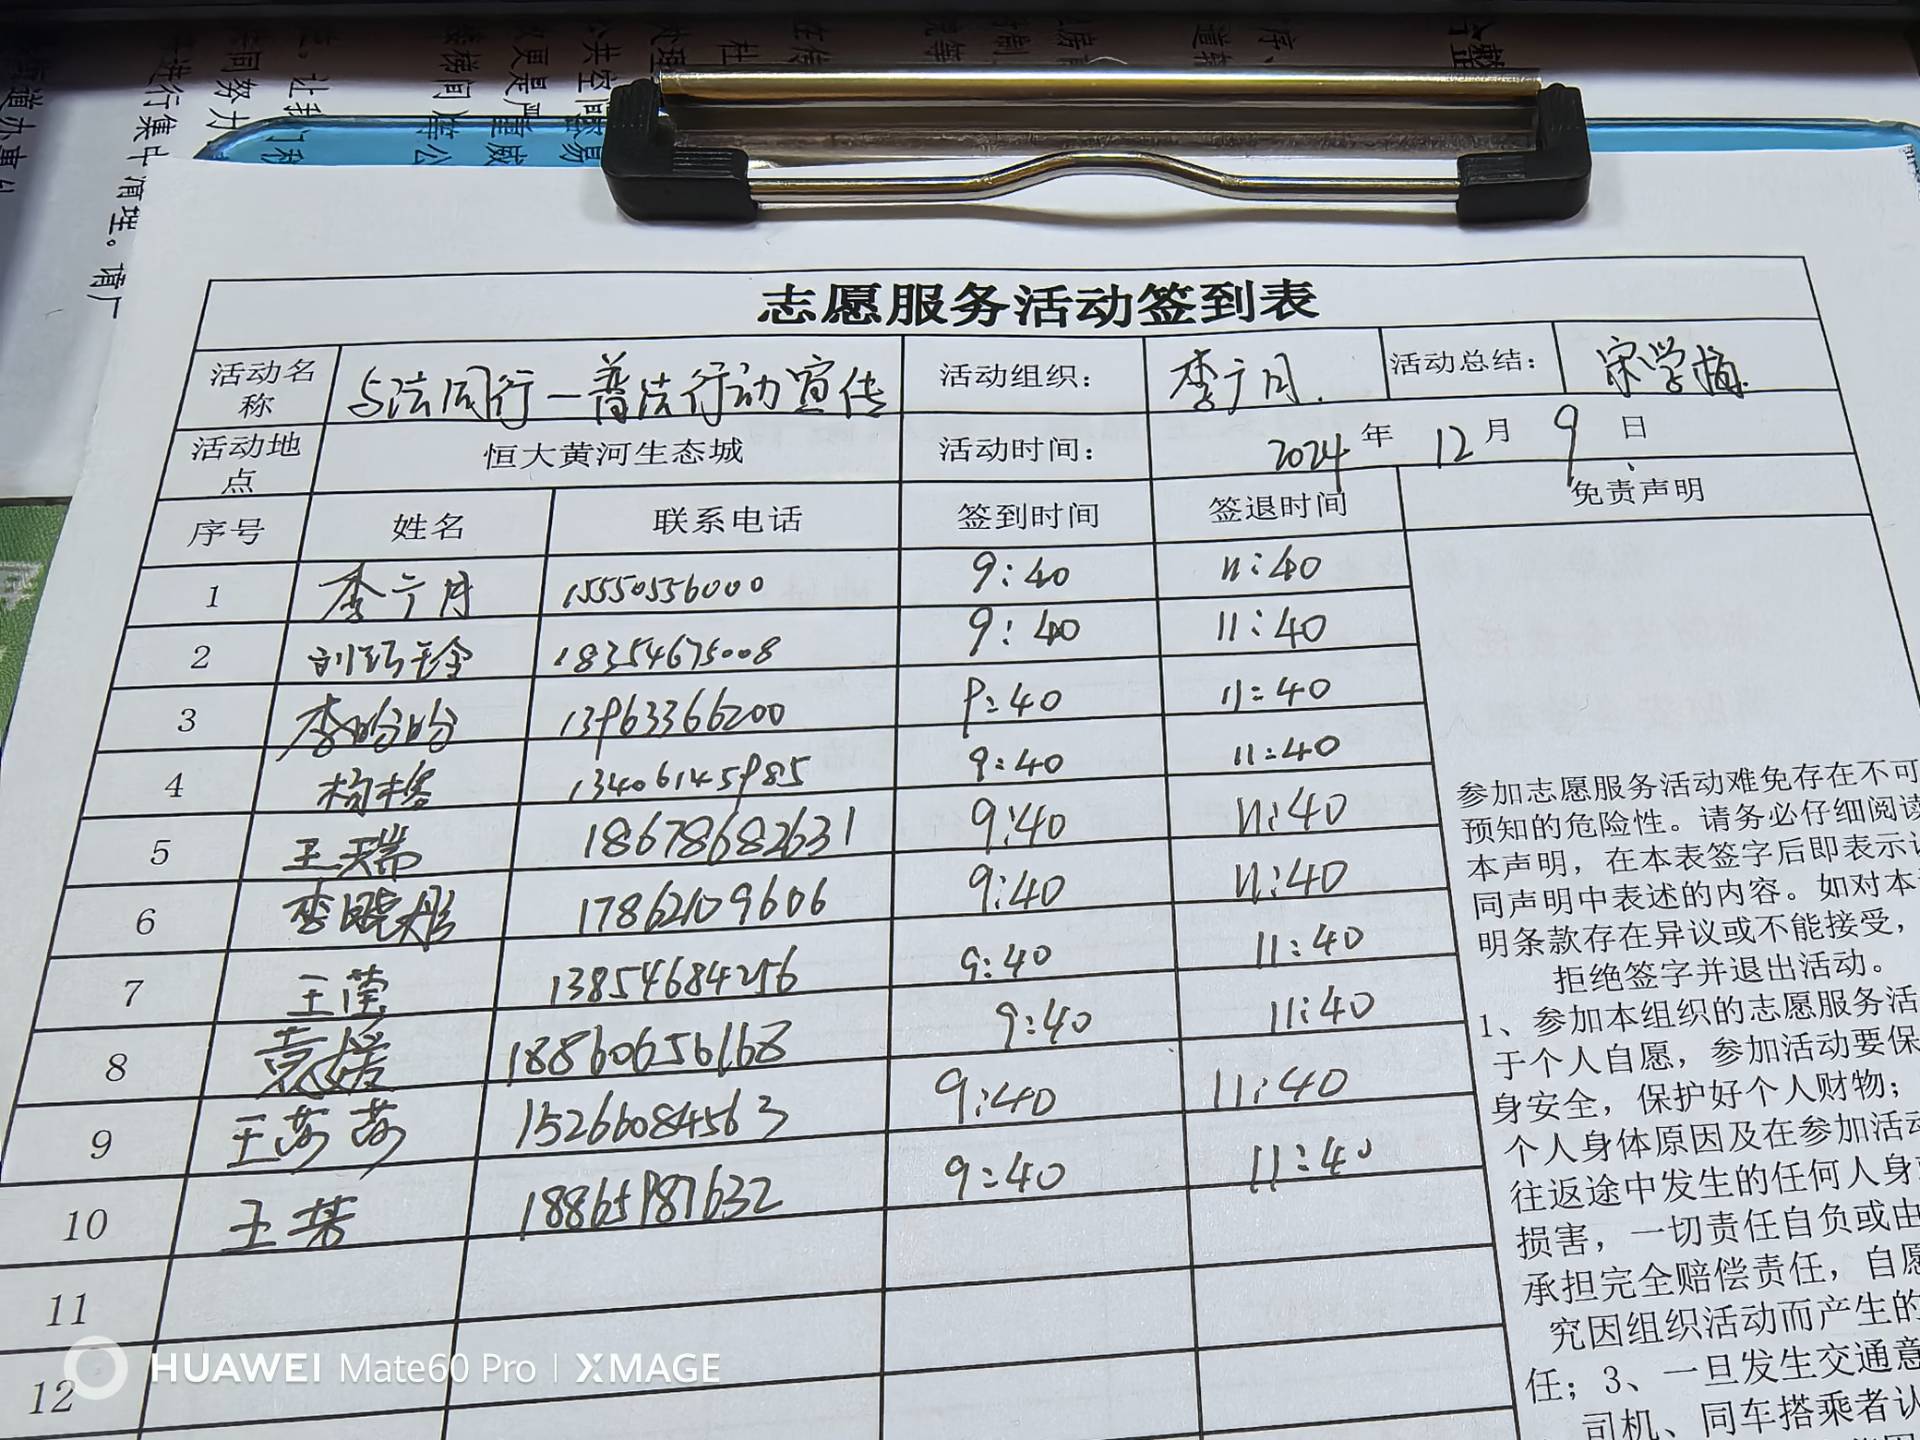 志愿服务活动签到表
活动名称 与法同行—普法行动宣传 活动组织: 李广月 活动总结: 宋学梅
活动地点 恒大黄河生态城 活动时间: 2024 年 12 月 9 日
序号 姓名 联系电话 签到时间 签退时间 免责声明
1 李广月 15550556000 9:40 11:40
2 18354675008 9:40 11:40
3 李盼盼 13963366200 9:40 11:40
4 13406145985 9:40 11:40
5 王瑞 18678682631 9:40 11:40
6 李晓彤 17862109606 9:40 11:40
7 王莹 13854684256 9:40 11:40
8 袁媛 18860656168 9:40 11:40
9 王莎莎 15266084563 9:40 11:40
10 王芳 18865987632 9:40 11:40
11
12
参加志愿服务活动难免存在不可
预知的危险性。请务必仔细阅读
本声明，在本表签字后即表示认
同声明中表述的内容。如对本
明条款存在异议或不能接受，
拒绝签字并退出活动。
1、参加本组织的志愿服务活
于个人自愿，参加活动要保
身安全，保护好个人财物；
个人身体原因及在参加活动
往返途中发生的任何人身
损害，一切责任自负或由
承担完全赔偿责任，自愿
究因组织活动而产生的
任；3、一旦发生交通意
司机、同车搭乘者认
HUAWEI Mate60 Pro | XMAGE